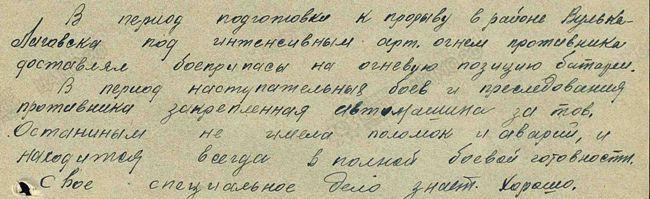 В период подготовки к прорыву в районе Вулька-
Лаговска под интенсивным арт. огнем противника
доставлял боеприпасы на огневую позицию батареи.
В период наступательных боев и преследования
противника закрепленная автомашина за тов.
Останиным не имела поломок и аварий, и
находится всегда в полной боевой готовности.
Свое специальное дело знает. Хорошо.